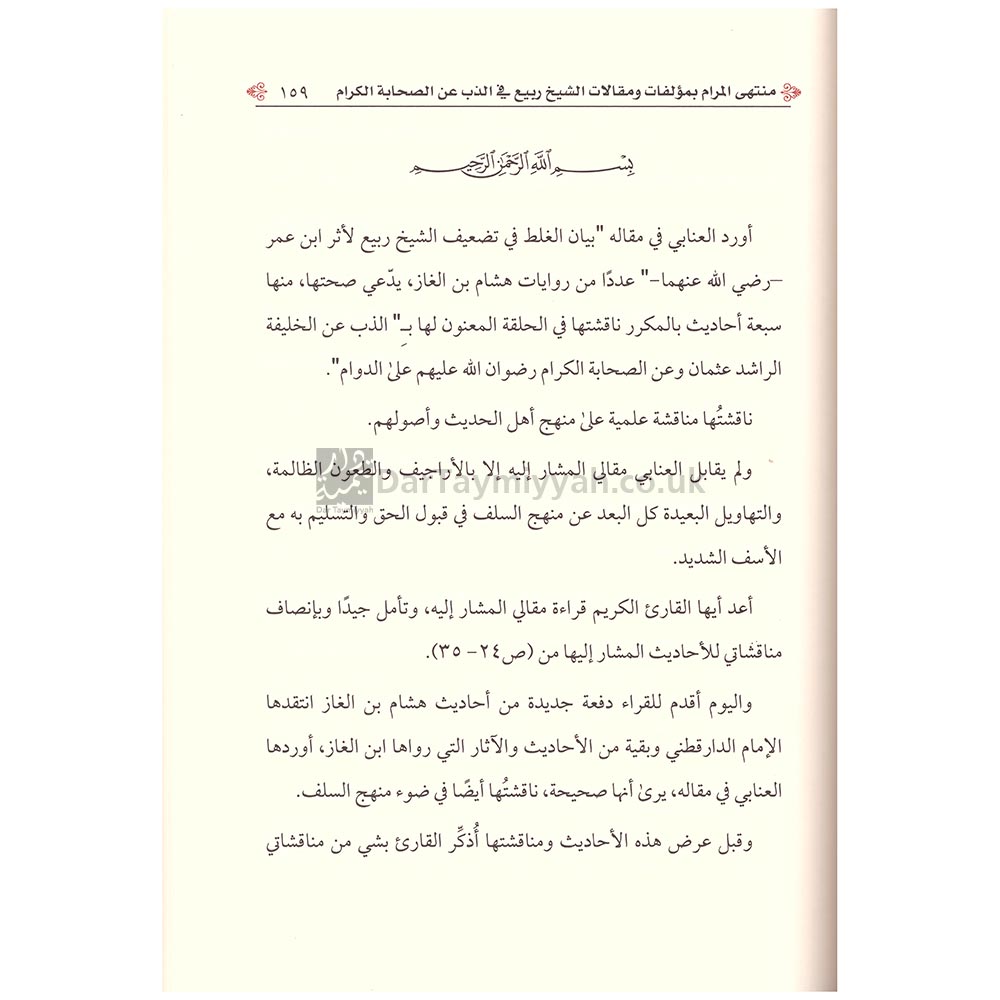 منتهى المرام بمؤلفات ومقالات الشيخ ربيع في الذب عن الصحابة الكرام ١٥٩
بِسْمِ اللَّهِ الرَّحْمَٰنِ الرَّحِيمِ
أورد العنابي في مقاله "بيان الغلط في تضعيف الشيخ ربيع لأثر ابن عمر
–رضي الله عنهما–" عددًا من روايات هشام بن الغاز، يدّعي صحتها، منها
سبعة أحاديث بالمكرر ناقشتها في الحلقة المعنون لها بـِ" الذب عن الخليفة
الراشد عثمان وعن الصحابة الكرام رضوان الله عليهم علىٰ الدوام".
ناقشتُها مناقشة علمية علىٰ منهج أهل الحديث وأصولهم.
ولم يقابل العنابي مقالي المشار إليه إلا بالأراجيف والطعون الظالمة،
DarTaymiyyah.co.uk
Dar Taymiyyah
والتهاويل البعيدة كل البعد عن منهج السلف في قبول الحق والتسليم به مع
الأسف الشديد.
أعد أيها القارئ الكريم قراءة مقالي المشار إليه، وتأمل جيدًا وبإنصاف
مناقشاتي للأحاديث المشار إليها من (ص٢٤- ٣٥).
واليوم أقدم للقراء دفعة جديدة من أحاديث هشام بن الغاز انتقدها
الإمام الدارقطني وبقية من الأحاديث والآثار التي رواها ابن الغاز، أوردها
العنابي في مقاله، يرىٰ أنها صحيحة، ناقشتُها أيضًا في ضوء منهج السلف.
وقبل عرض هذه الأحاديث ومناقشتها أُذكِّر القارئ بشي من مناقشاتي